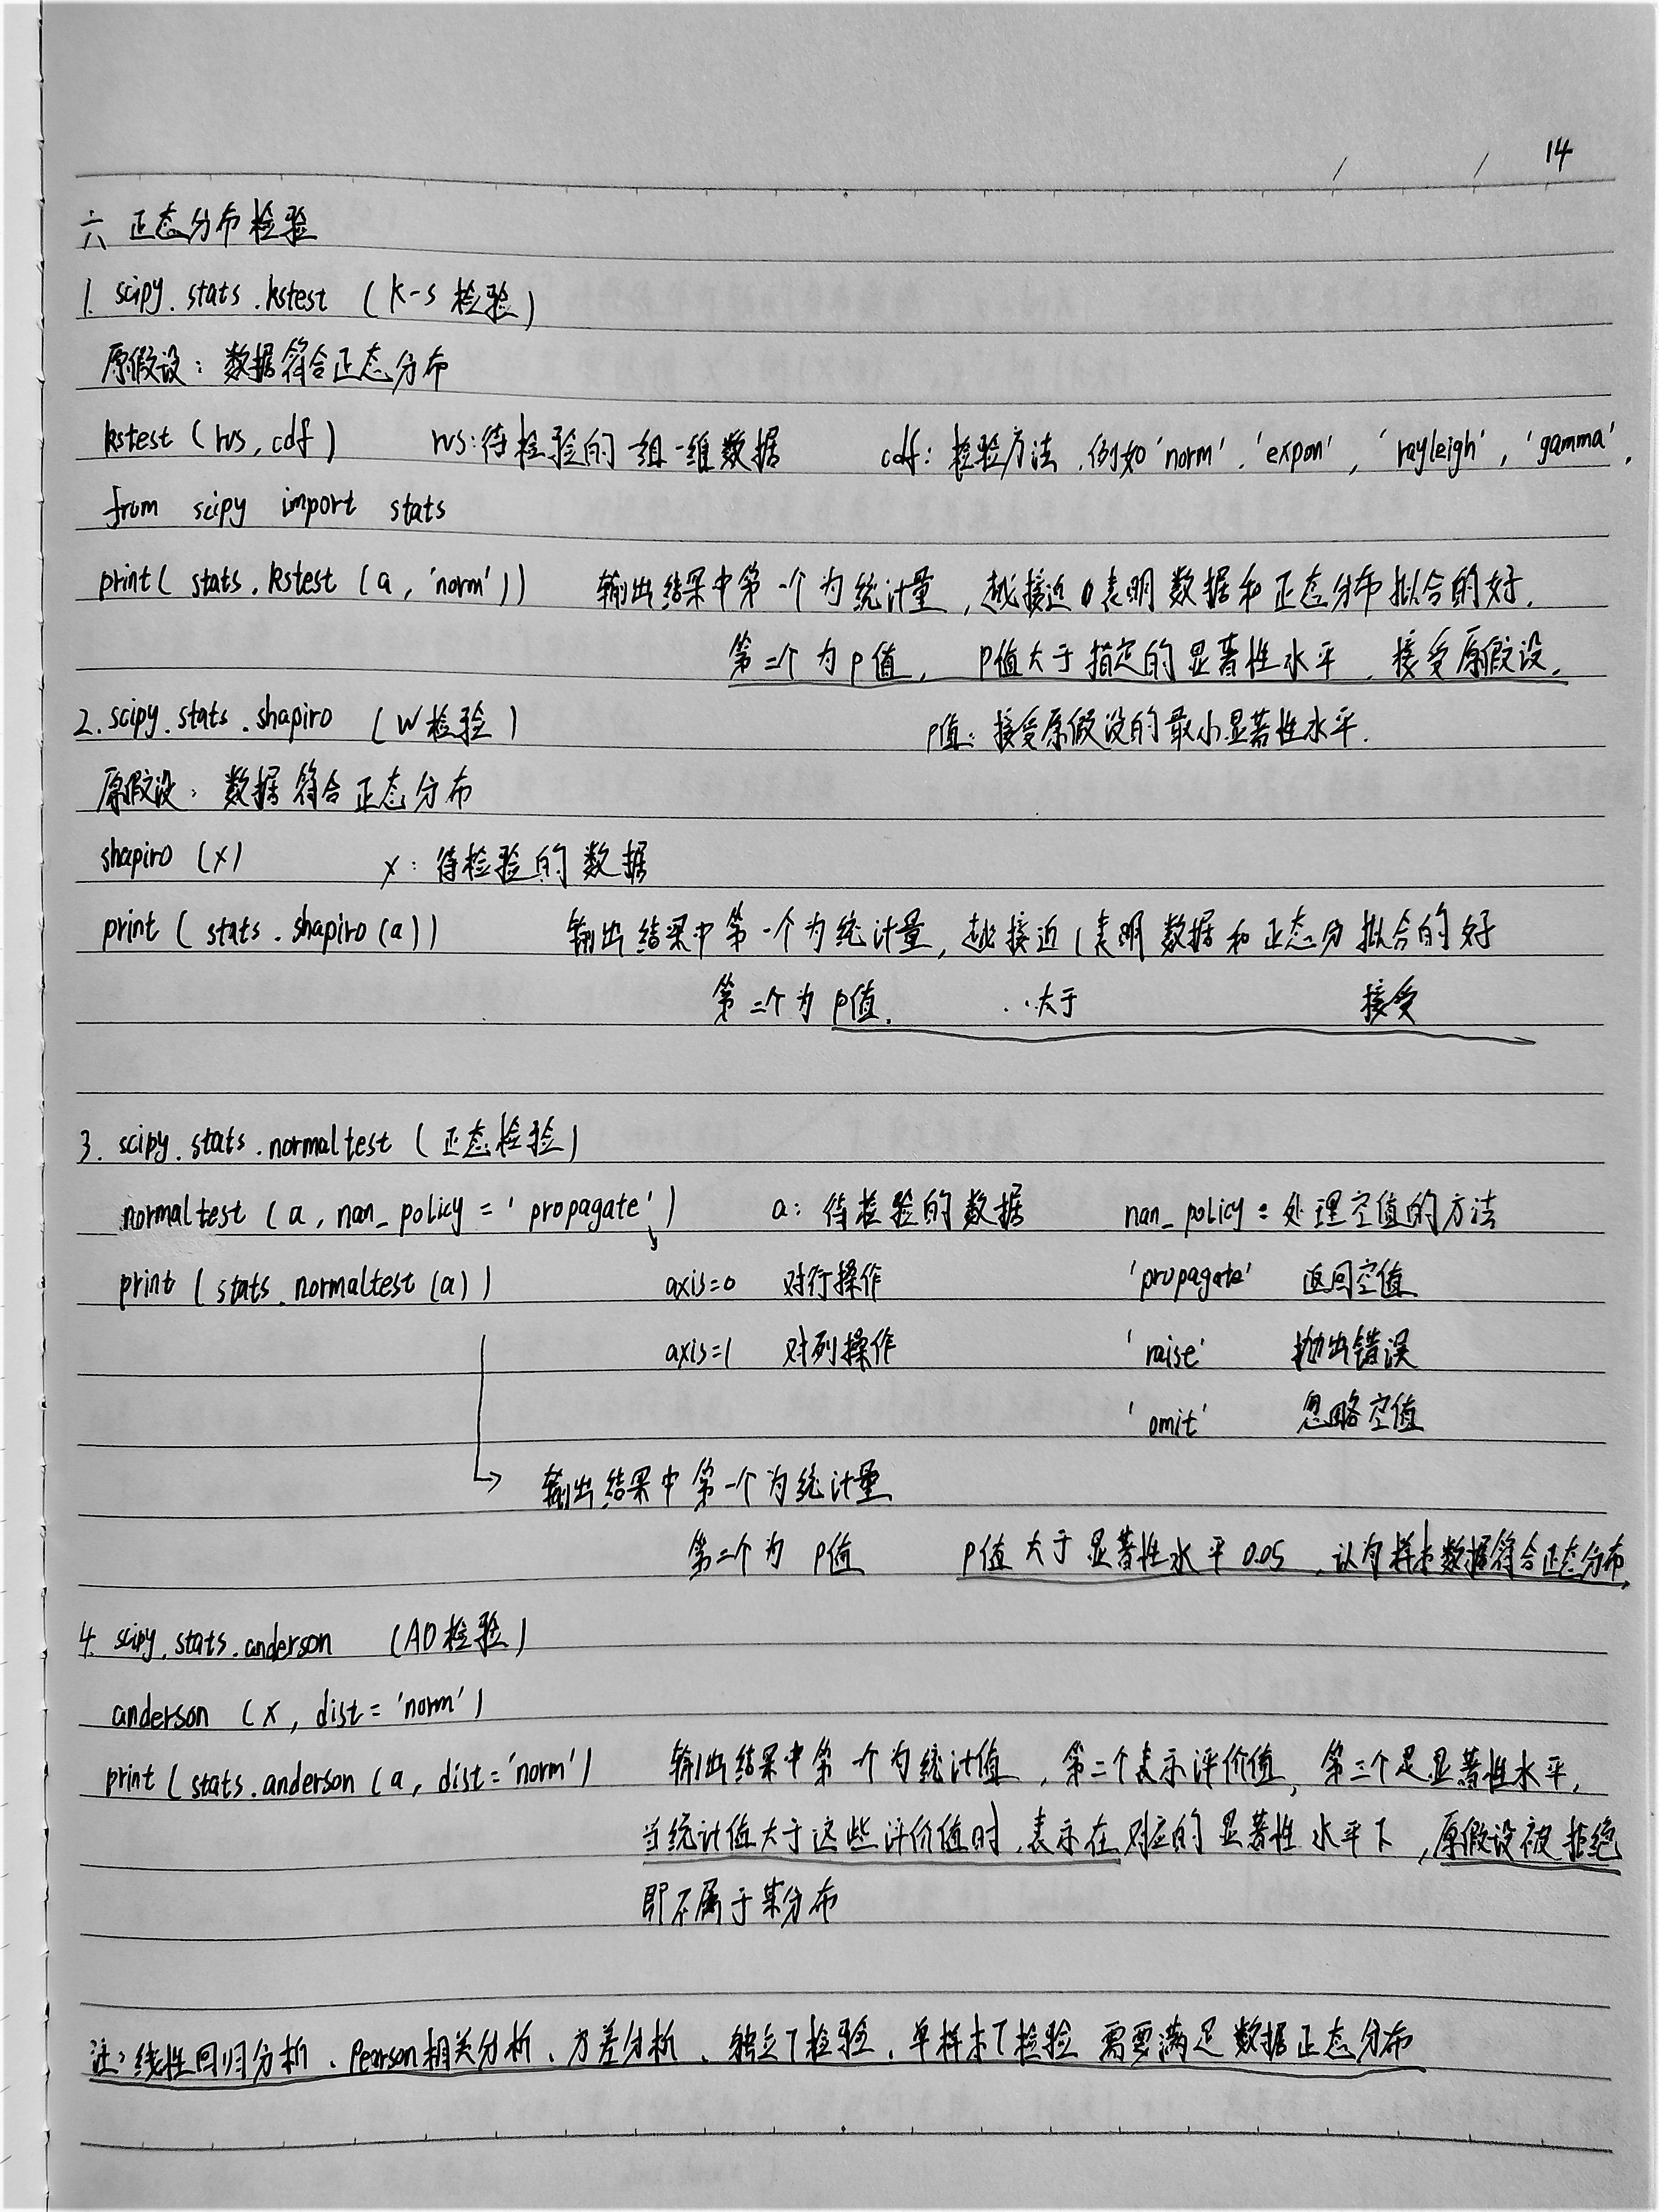 14
六 正态分布检验
1. scipy.stats.kstest (k-s检验)
原假设：数据符合正态分布
kstest (rvs, cdf) rvs:待检验的一组一维数据 cdf: 检验方法，例如'norm', 'expon', 'rayleigh', 'gamma'.
from scipy import stats
print( stats.kstest (a, 'norm')) 输出结果中第一个为统计量，越接近0表明数据和正态分布拟合的好.
第二个为p值， p值大于指定的显著性水平，接受原假设。
2. scipy.stats.shapiro (W检验) p值：接受原假设的最小显著性水平.
原假设：数据符合正态分布
shapiro (x) x: 待检验的数据
print ( stats.shapiro (a)) 输出结果中第一个为统计量，越接近1表明数据和正态分拟合的好
第二个为p值. 大于 接受
3. scipy.stats.normaltest (正态检验)
normaltest (a, nan_policy = 'propagate') a: 待检验的数据 nan_policy: 处理空值的方法
print ( stats.normaltest (a)) axis=0 对行操作 'propagate' 返回空值
axis=1 对列操作 'raise' 抛出错误
'omit' 忽略空值
输出结果中第一个为统计量
第二个为 p值 p值大于显著性水平0.05，认为样本数据符合正态分布.
4. scipy.stats.anderson (AD检验)
anderson (x, dist= 'norm')
print ( stats.anderson (a, dist='norm') 输出结果中第一个为统计值，第二个表示评价值，第三个是显著性水平.
当统计值大于这些评价值时，表示在对应的显著性水平下，原假设被拒绝
即不属于某分布
注：线性回归分析、Pearson相关分析、方差分析、独立T检验、单样本T检验 需要满足数据正态分布